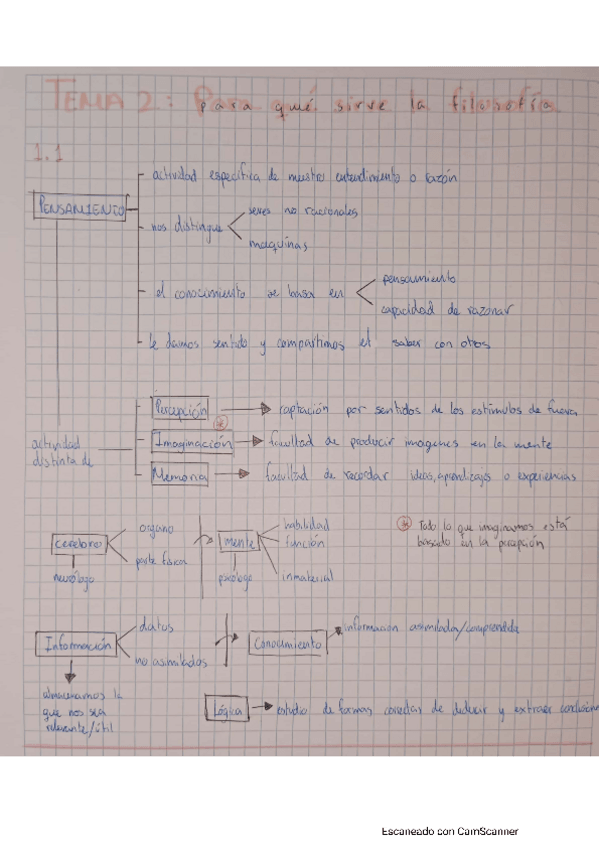 TEMA 2: Para qué sirve la filosofía
1.1
PENSAMIENTO
actividad específica de nuestro entendimiento o razón
nos distingue
seres no racionales
maquinas
el conocimiento se basa en
pensamiento
capacidad de razonar
le damos sentido y compartimos el saber con otros
actividad
distinta de
Percepción
captación por sentidos de los estímulos de fuera
Imaginación
facultad de producir imagenes en la mente
Memoria
facultad de recordar ideas, aprendizajes o experiencias
cerebro
organo
parte física
neurólogo
mente
habilidad
función
inmaterial
psicólogo
* Todo lo que imaginamos está
basado en la percepción
Información
datos
no asimilados
almacenamos lo
que nos sea
relevante/útil
Conocimiento
informacion asimilada/comprendida
Lógica
estudio de formas correctas de deducir y extraer conclusion
Escaneado con CamScanner